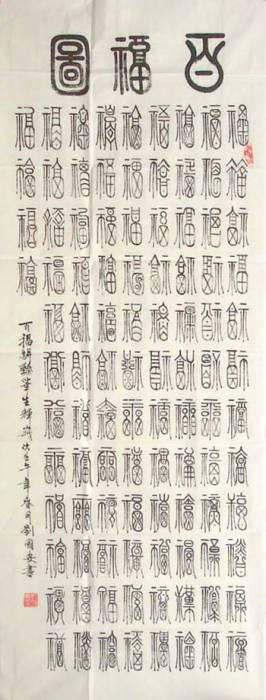 百福圖
福福福福福福福福福福福福
福福福福福福福福福福福福
福福福福福福福福福福福福
福福福福福福福福福福福福
福福福福福福福福福福福福
福福福福福福福福福福福福
福福福福福福福福福福福福
福福福福福福福福福福福福
福福福福
百福駢臻筆生輝歲次年春月劉國書